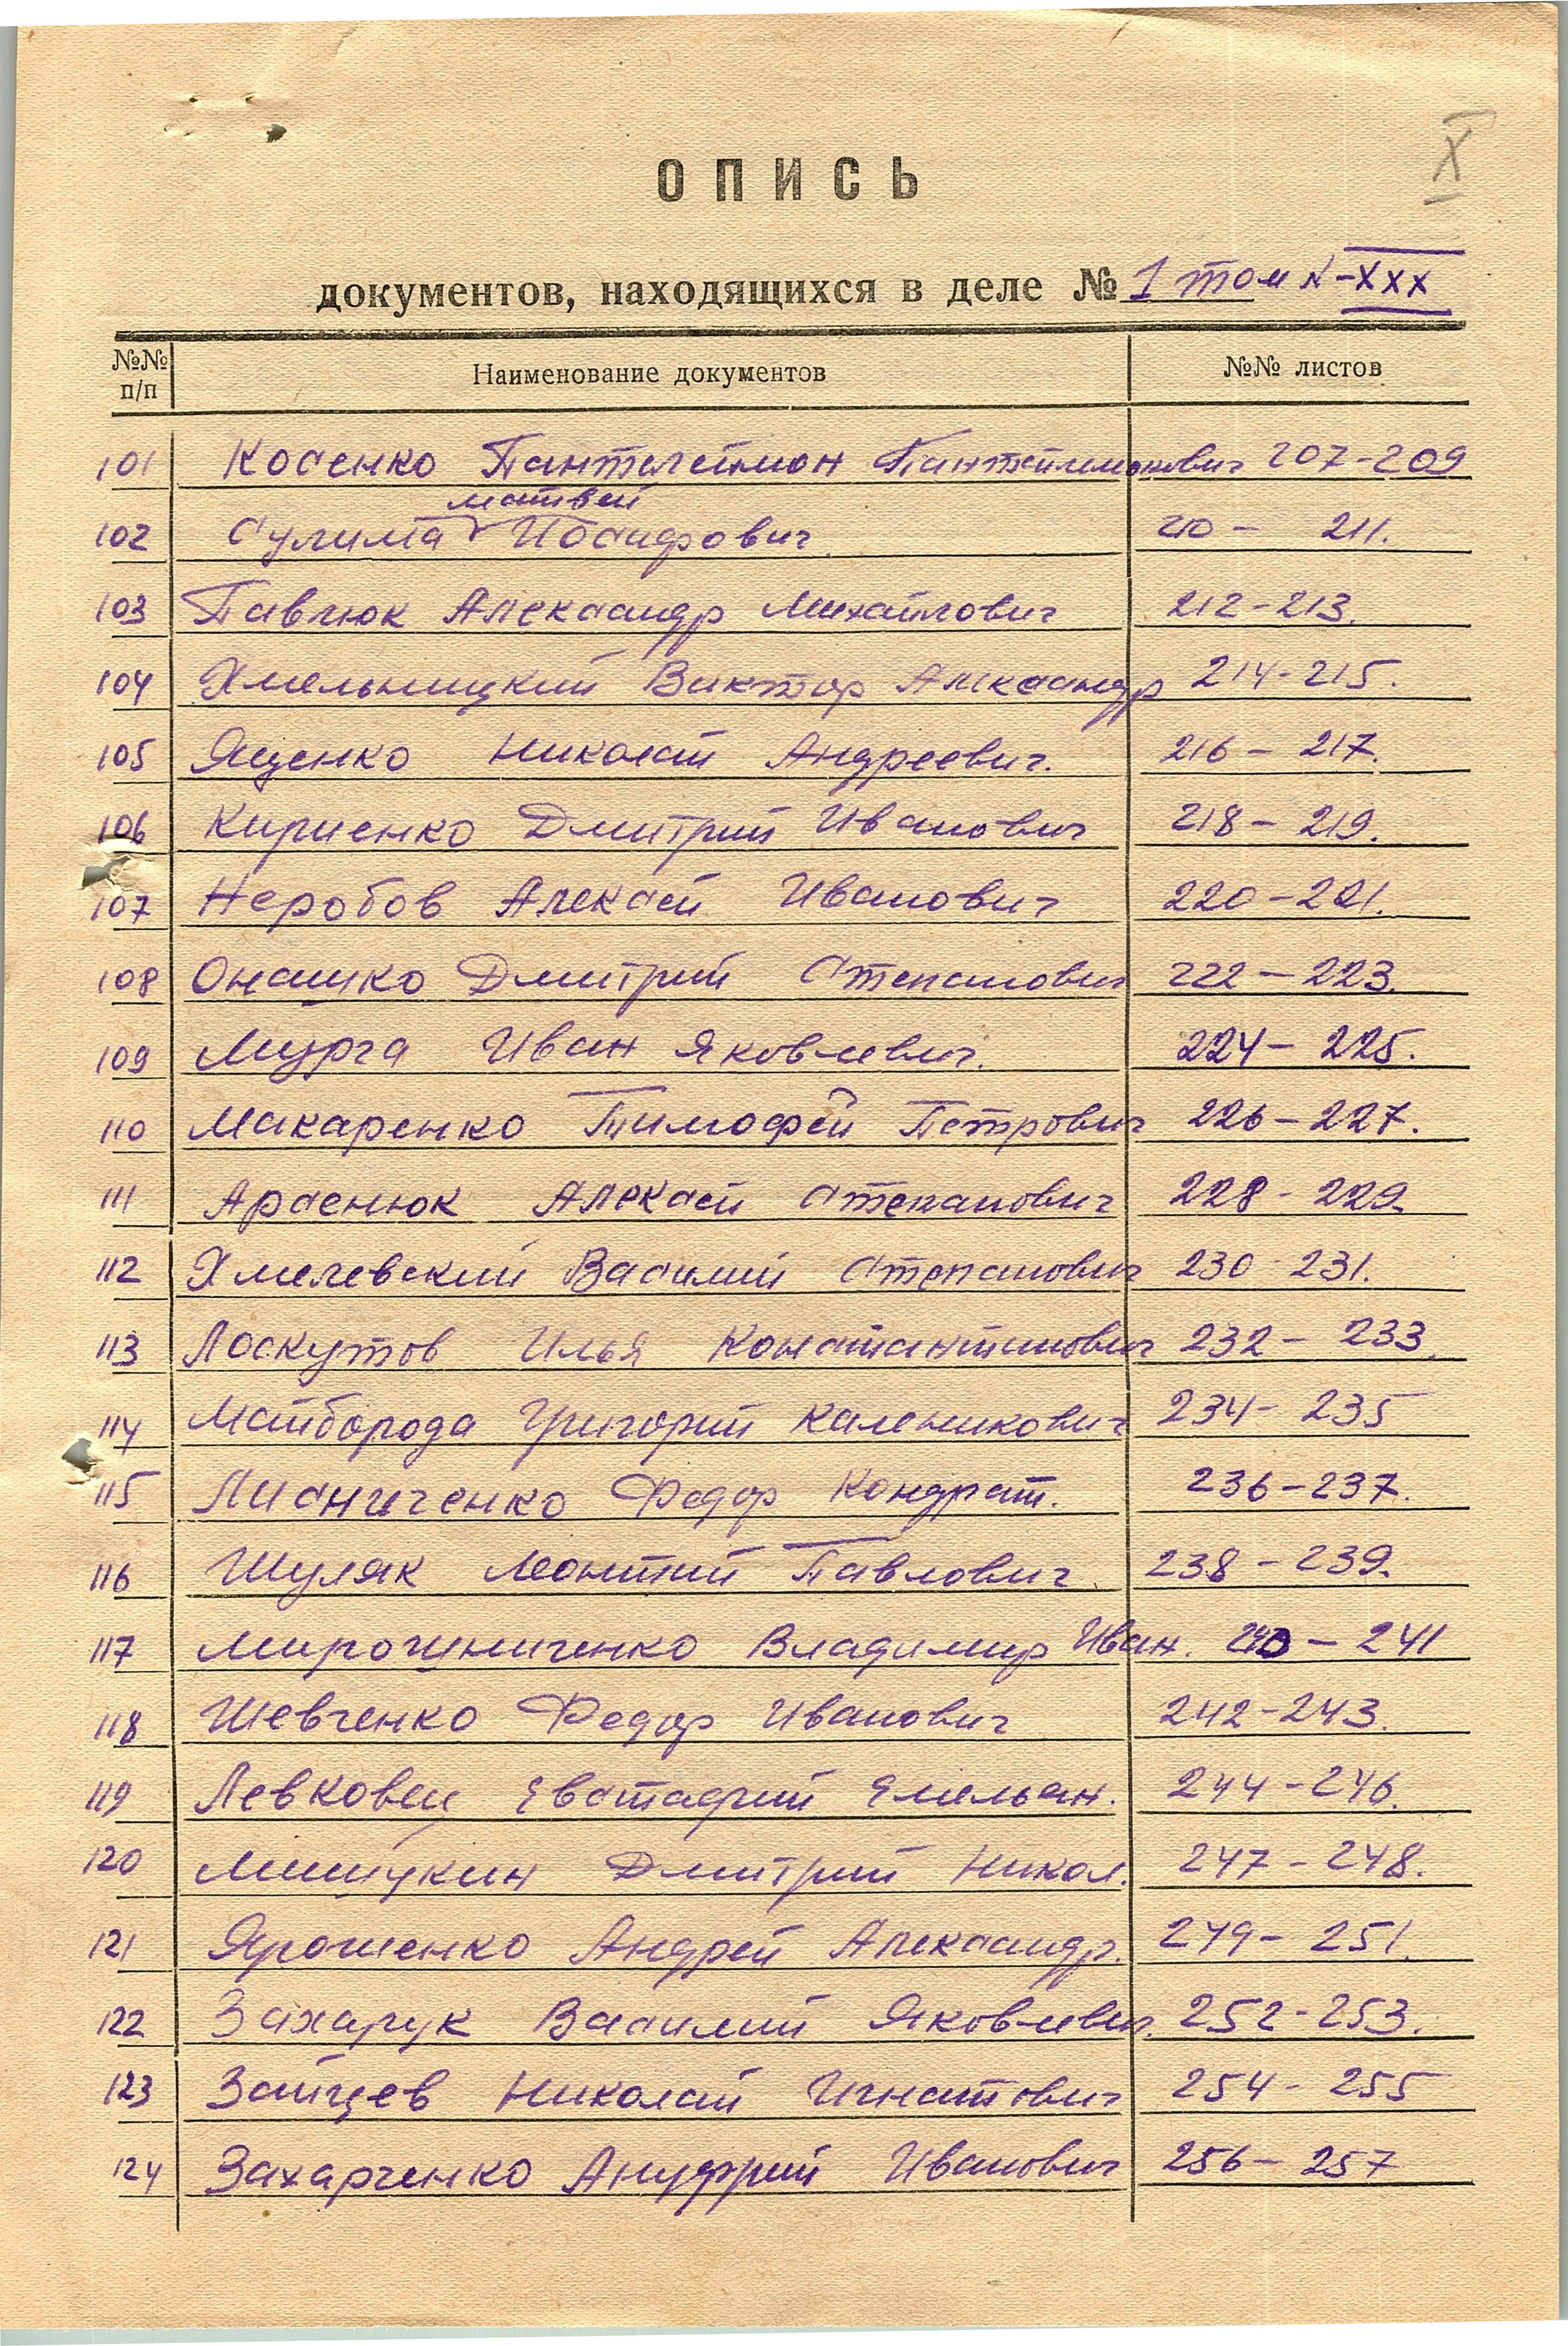 X
ОПИСЬ
документов, находящихся в деле № 1 том №-XXX
№№ п/п Наименование документов №№ листов
101 Косенко Пантелеймон Пантелеймонович 207-209
матвей
102 Сулима Иосифович 210- 211.
103 Павлюк Александр Михайлович 212-213.
104 Хмельницкий Виктор Александр 214-215.
105 Яценко Николай Андреевич. 216- 217.
106 Кириенко Дмитрий Иванович 218- 219.
107 Неробов Алексей Иванович 220-221.
108 Онашко Дмитрий Степанович 222-223.
109 Мурга Иван Яковлевич. 224- 225.
110 Макаренко Тимофей Петрович 226-227.
111 Арсенюк Алексей Степанович 228-229.
112 Хмелевский Василий Степанович 230-231.
113 Лоскутов Илья Константинович 232- 233.
114 Майборода Григорий Каленикович 234- 235
115 Лисниченко Федор Кондрат. 236-237.
116 Шуляк Леонтий Павлович. 238-239.
117 Мирошниченко Владимир Иван. 240-241
118 Шевченко Федор Иванович 242-243.
119 Левковец Евстафий Емельян. 244-246.
120 Мишукин Дмитрий Никол. 247-248.
121 Ярошенко Андрей Александр. 249- 251.
122 Захарук Василий Яковлевич. 252-253.
123 Зайцев Николай Игнатович 254- 255
124 Захарченко Ануфрий Иванович 256- 257